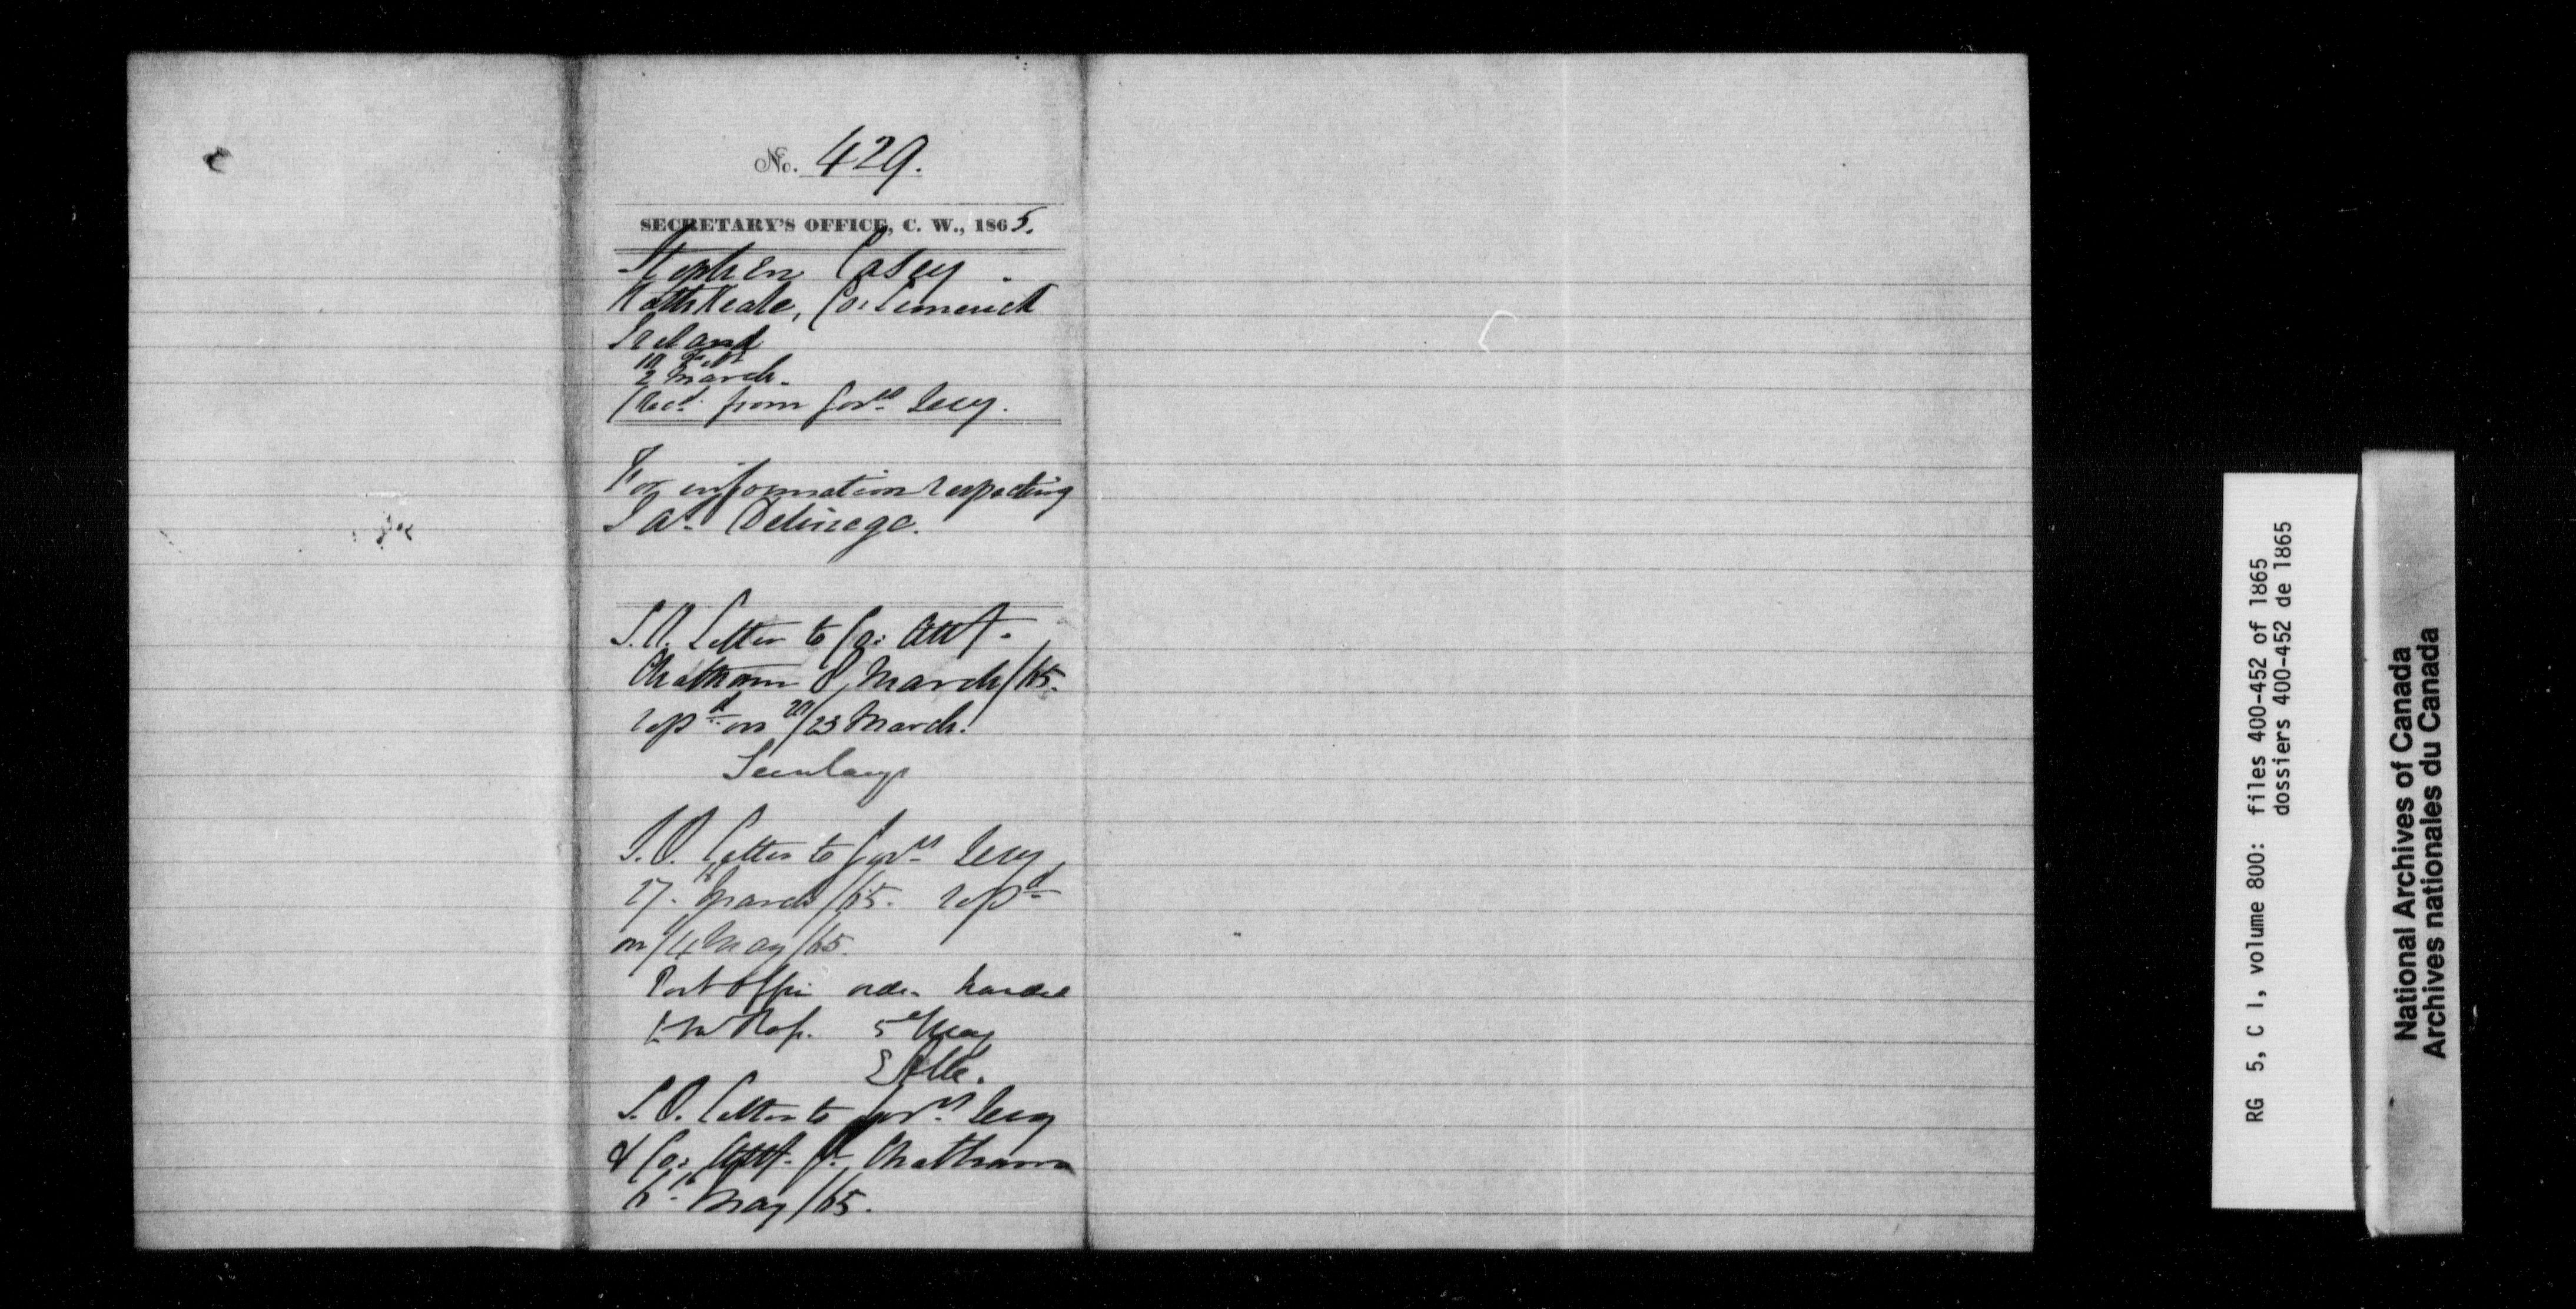 No. 429.
SECRETARY'S OFFICE, C. W., 1865.
Stephen Casey.
Rathkeale, Co: Limerick
Ireland
2 March.
Recd. from Govrs Secy.
For information respecting
Jas. Delmege.
S.O. Letter to Co: Atty.
Chatham 8 March/65.
repd on 20/23 March.
S.O. Letter to Govrs Secy,
27. March/65. repd
on /4 May/65.
Post Office order handed
5 May
S.O. Letter to Govrs Secy
& Co: Atty. Chatham
6th May/65.
RG 5, C 1, volume 800: files 400-452 of 1865
dossiers 400-452 de 1865
National Archives of Canada
Archives nationales du Canada